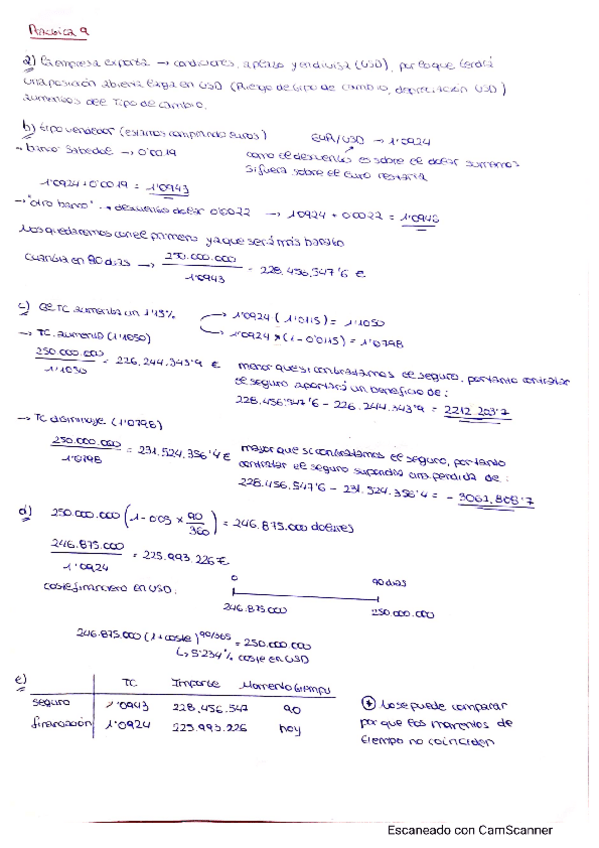 Práctica 9
a) La empresa exporta → condiciones, a plazo y en divisa (USD), por lo que tendrá
una posición abierta larga en USD (Riesgo de tipo de cambio, depreciación USD)
aumentos del tipo de cambio.
b) tipo vendedor (estamos comprando euros) EUR/USD → 1'0924
→ banco Sabadell → 0'0019 como el descuento es sobre el dolar sumamos
si fuera sobre el euro restaría
1'0924 + 0'0019 = 1'0943
→ "otro banco" descuento dolar 0'0022 → 1'0924 + 0'0022 = 1'0946
Nos quedaremos con el primero ya que será más barato
Cuantía en 90 días → 250.000.000 / 1'0943 = 228.456.547'6 €
c) el TC aumenta un 1'15% → 1'0924 (1'0115) = 1'1050
→ 1'0924 x (1 - 0'0115) = 1'0798
→ TC. aumento (1'1050)
250.000.000 / 1'1050 = 226.244.343'9 € menor que si contratamos el seguro, por tanto contratar
el seguro aportará un beneficio de:
228.456.547'6 - 226.244.343'9 = 2212 203'7
→ TC disminuye (1'0798)
250.000.000 / 1'0798 = 231.524.356'4 € mayor que si contratamos el seguro, por tanto
contratar el seguro supondría una perdida de:
228.456.547'6 - 231.524.356'4 = - 3061.808'7
d) 250.000.000 (1 - 0'05 x 90/360) = 246.875.000 dolares
246.875.000 / 1'0924 = 225.993.226 €
coste financiero en USD. 0 90 dias
246.875.000 250.000.000
246.875.000 (1 + coste)^90/365 = 250.000.000
↳ 5'234% coste en USD
e) TC Importe Momento tiempo
seguro 1'0943 228.456.547 90
financiación 1'0924 225.993.226 hoy
* No se puede comparar
por que los momentos de
tiempo no coinciden
Escaneado con CamScanner